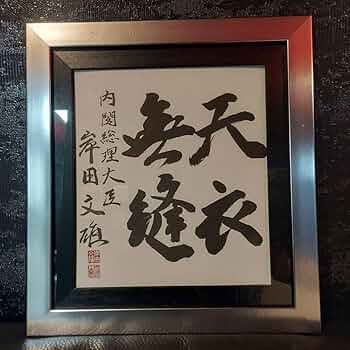 天衣
無縫
内閣総理大臣
岸田文雄